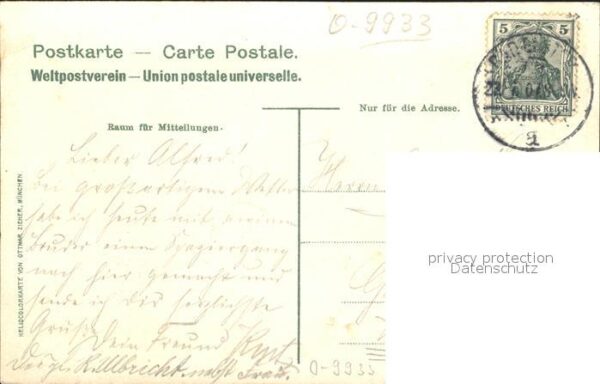 O-9933
Postkarte — Carte Postale.
Weltpostverein — Union postale universelle.
5 5
DEUTSCHES REICH
a
Nur für die Adresse.
Raum für Mitteilungen.
Lieber Alfred!
Bei großartigem Wetter
habe ich heute mit meinem
Bruder einen Spaziergang
nach hier gemacht und
sende ich Dir herzlichste
Grüße Dein Freund Kurt
Ullbricht nebst Frau.
Herrn
HELIOCOLORKARTE VON OTTMAR ZIEHER, MÜNCHEN.
privacy protection
Datenschutz
O-9933